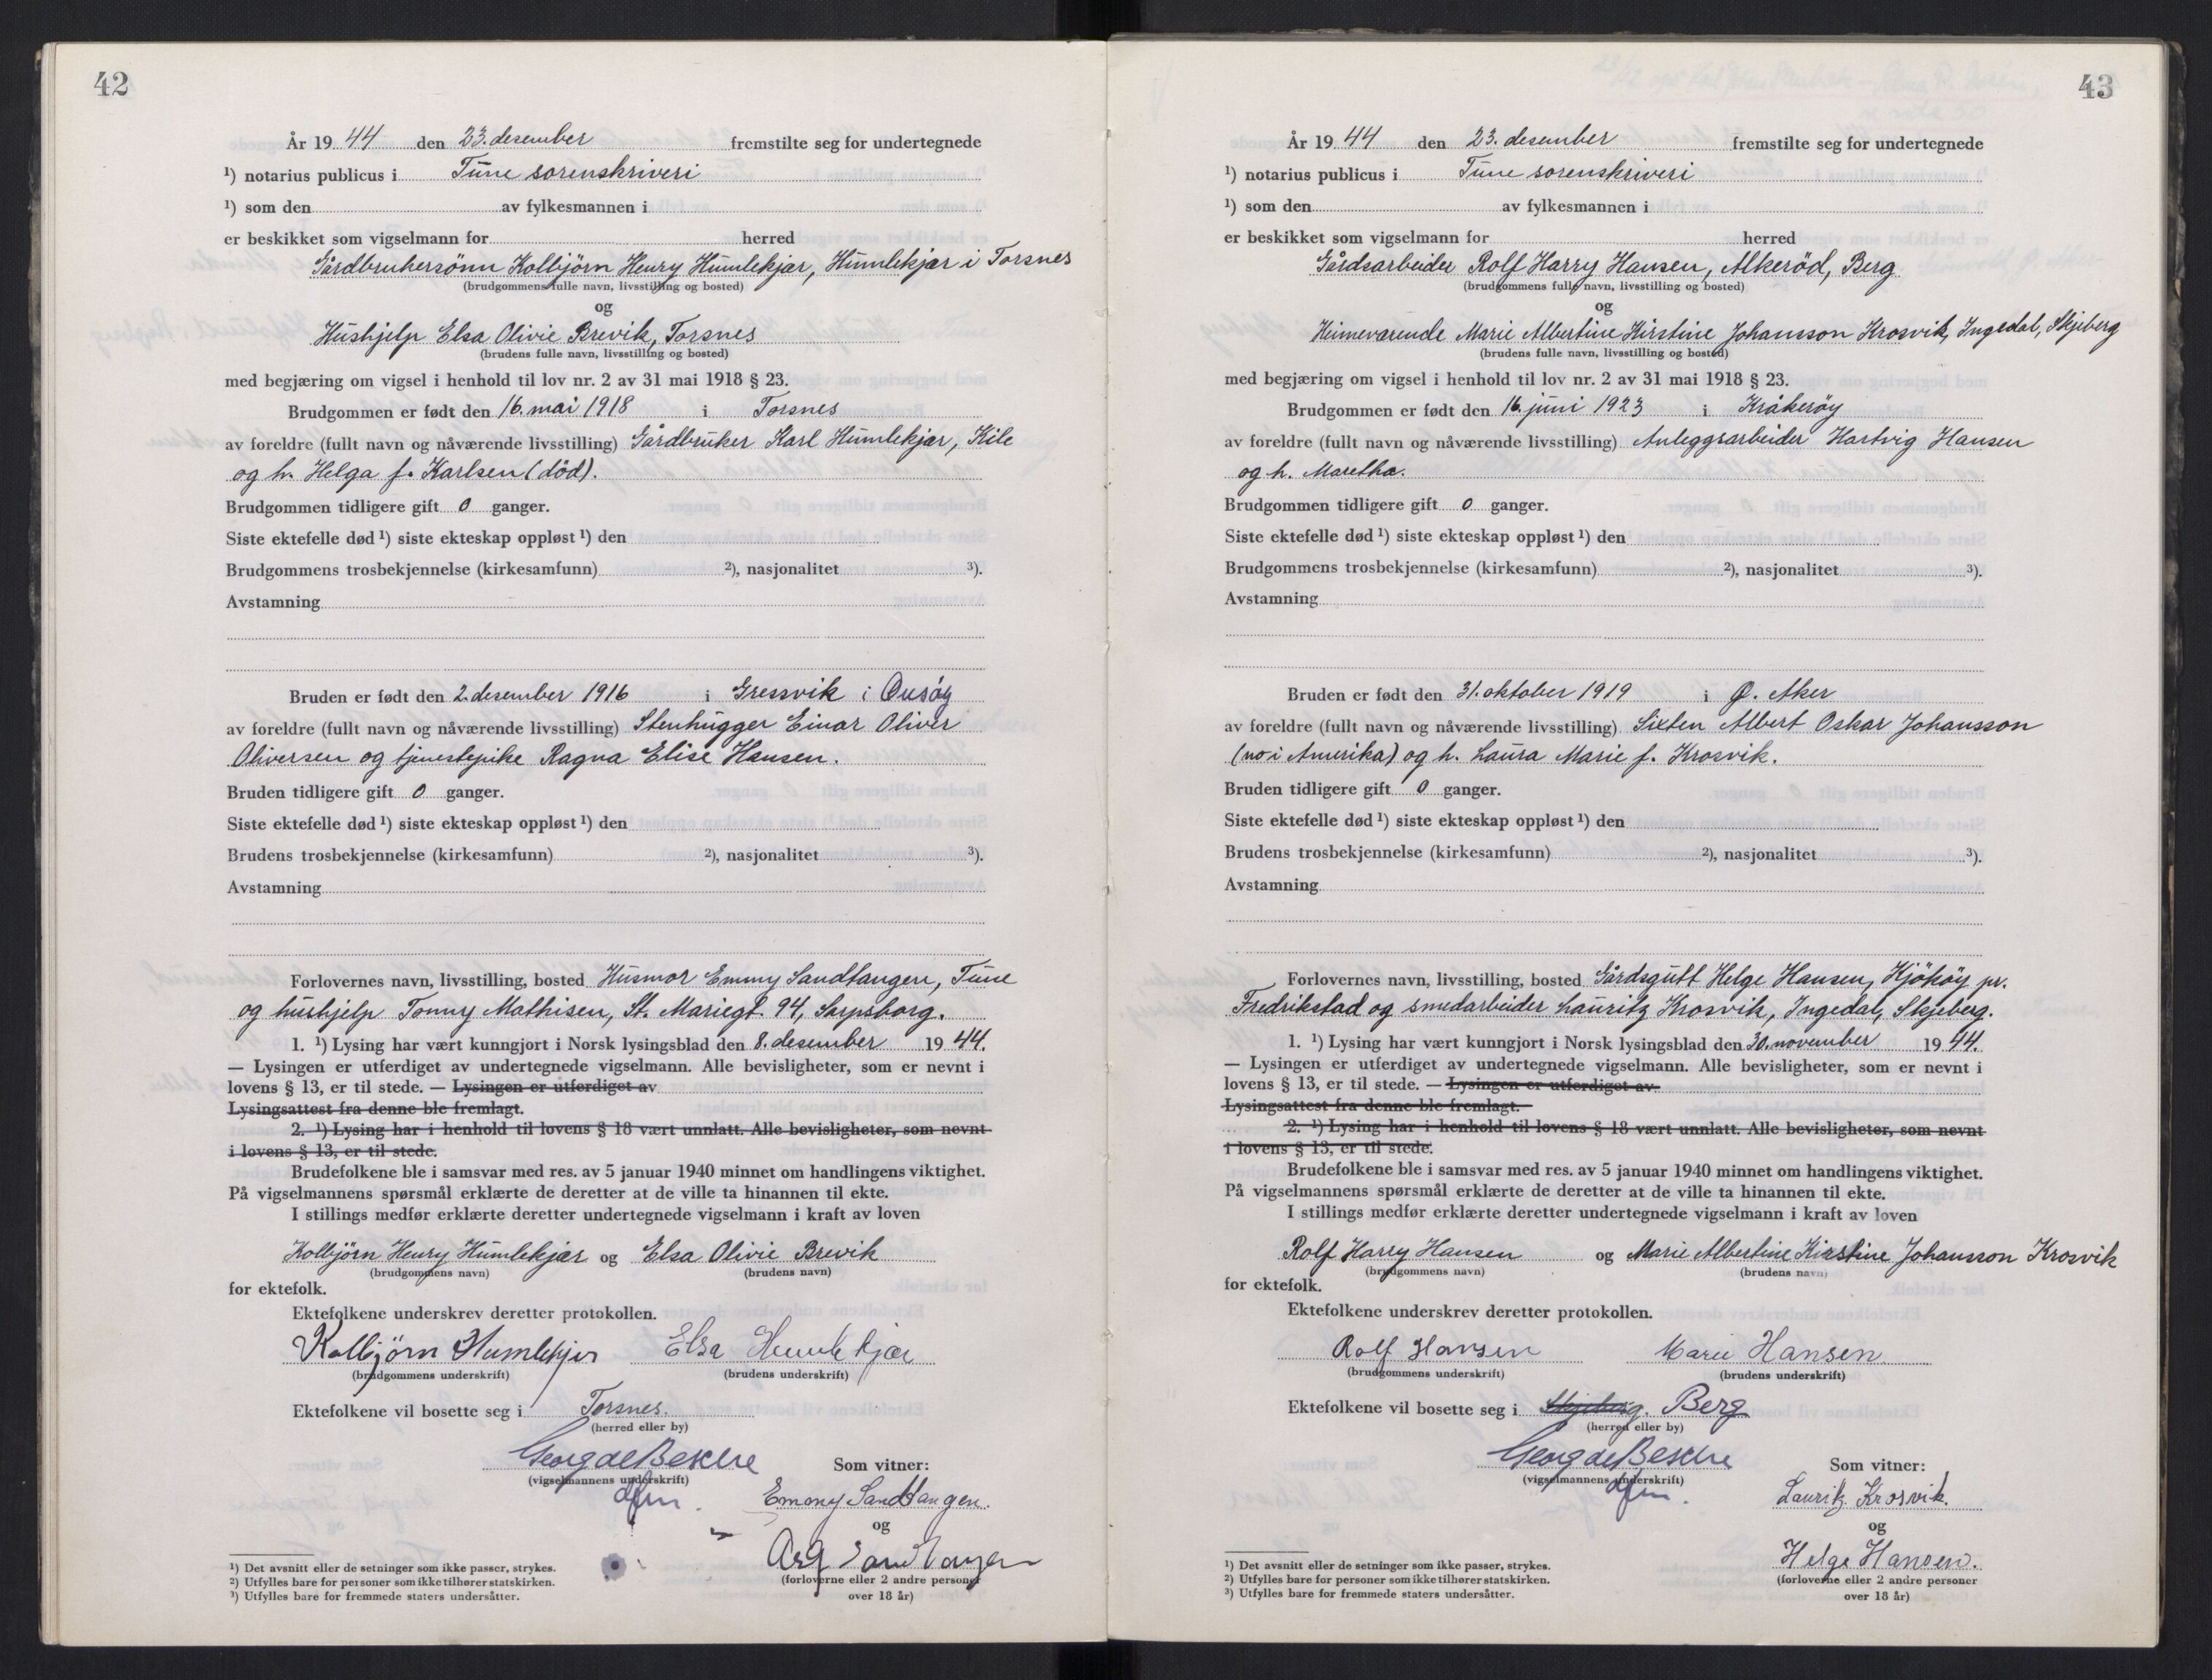 42
År 19 44 den 23. desember fremstilte seg for undertegnede
¹) notarius publicus i Tune sorenskriveri
¹) som den av fylkesmannen i
er beskikket som vigselmann for herred
Gårdbrukersönn Kolbjörn Henry Humlekjær, Humlekjær i Torsnes
(brudgommens fulle navn, livsstilling og bosted)
og
Hushjelp Elsa Olivie Brevik, Torsnes
(brudens fulle navn, livsstilling og bosted)
med begjæring om vigsel i henhold til lov nr. 2 av 31 mai 1918 § 23.
Brudgommen er født den 16. mai 1918 i Torsnes
av foreldre (fullt navn og nåværende livsstilling) Gårdbruker Karl Humlekjær, Kile
og h. Helga f. Karlsen (död).
Brudgommen tidligere gift 0 ganger.
Siste ektefelle død ¹) siste ekteskap oppløst ¹) den
Brudgommens trosbekjennelse (kirkesamfunn) ²), nasjonalitet ³).
Avstamning
Bruden er født den 2. desember 1916 i Gressvik i Onsöy
av foreldre (fullt navn og nåværende livsstilling) Stenhugger Einar Oliver
Oliversen og tjenestepike Ragna Elise Hansen.
Bruden tidligere gift 0 ganger.
Siste ektefelle død ¹) siste ekteskap oppløst ¹) den
Brudens trosbekjennelse (kirkesamfunn) ²), nasjonalitet ³).
Avstamning
Forlovernes navn, livsstilling, bosted Husmor Emmy Sandtangen, Tune
og hushjelp Tonny Mathisen, St. Mariegt. 94, Sarpsborg.
1. ¹) Lysing har vært kunngjort i Norsk lysingsblad den 8. desember 19 44.
— Lysingen er utferdiget av undertegnede vigselmann. Alle bevisligheter, som er nevnt i
lovens § 13, er til stede. — Lysingen er utferdiget av
Lysingsattest fra denne ble fremlagt.
2. ¹) Lysing har i henhold til lovens § 18 vært unnlatt. Alle bevisligheter, som nevnt
i lovens § 13, er til stede.
Brudefolkene ble i samsvar med res. av 5 januar 1940 minnet om handlingens viktighet.
På vigselmannens spørsmål erklærte de deretter at de ville ta hinannen til ekte.
I stillings medfør erklærte deretter undertegnede vigselmann i kraft av loven
Kolbjörn Henry Humlekjær og Elsa Olivie Brevik
(brudgommens navn) (brudens navn)
for ektefolk.
Ektefolkene underskrev deretter protokollen.
Kolbjörn Humlekjær Elsa Humlekjær
(brudgommens underskrift) (brudens underskrift)
Ektefolkene vil bosette seg i Torsnes.
(herred eller by)
Georg de Besche
(vigselmannens underskrift) Som vitner:
dfm.
Emmy Sandtangen.
og
Sandtangen
(forloverne eller 2 andre personer
over 18 år)
¹) Det avsnitt eller de setninger som ikke passer, strykes.
²) Utfylles bare for personer som ikke tilhører statskirken.
³) Utfylles bare for fremmede staters undersåtter.
43
År 19 44 den 23. desember fremstilte seg for undertegnede
¹) notarius publicus i Tune sorenskriveri
¹) som den av fylkesmannen i
er beskikket som vigselmann for herred
Gårdsarbeider Rolf Harry Hansen, Alkeröd, Berg
(brudgommens fulle navn, livsstilling og bosted)
og
Heimeværende Marie Albertine Kirstine Johansson Krosvik, Ingedal, Skjeberg
(brudens fulle navn, livsstilling og bosted)
med begjæring om vigsel i henhold til lov nr. 2 av 31 mai 1918 § 23.
Brudgommen er født den 16. juni 1923 i Kråkeröy
av foreldre (fullt navn og nåværende livsstilling) Anleggsarbeider Hartvig Hansen
og h. Maretha.
Brudgommen tidligere gift 0 ganger.
Siste ektefelle død ¹) siste ekteskap oppløst ¹) den
Brudgommens trosbekjennelse (kirkesamfunn) ²), nasjonalitet ³).
Avstamning
Bruden er født den 31. oktober 1919 i Ø. Aker
av foreldre (fullt navn og nåværende livsstilling) Sixten Albert Oskar Johansson
(no i Amerika) og h. Laura Marie f. Krosvik.
Bruden tidligere gift 0 ganger.
Siste ektefelle død ¹) siste ekteskap oppløst ¹) den
Brudens trosbekjennelse (kirkesamfunn) ²), nasjonalitet ³).
Avstamning
Forlovernes navn, livsstilling, bosted Gårdsgutt Helge Hansen, Kjököy pr.
Fredrikstad og smedarbeider Lauritz Krosvik, Ingedal, Skjeberg.
1. ¹) Lysing har vært kunngjort i Norsk lysingsblad den 30. november 19 44.
— Lysingen er utferdiget av undertegnede vigselmann. Alle bevisligheter, som er nevnt i
lovens § 13, er til stede. — Lysingen er utferdiget av
Lysingsattest fra denne ble fremlagt.
2. ¹) Lysing har i henhold til lovens § 18 vært unnlatt. Alle bevisligheter, som nevnt
i lovens § 13, er til stede.
Brudefolkene ble i samsvar med res. av 5 januar 1940 minnet om handlingens viktighet.
På vigselmannens spørsmål erklærte de deretter at de ville ta hinannen til ekte.
I stillings medfør erklærte deretter undertegnede vigselmann i kraft av loven
Rolf Harry Hansen og Marie Albertine Kirstine Johansson Krosvik
(brudgommens navn) (brudens navn)
for ektefolk.
Ektefolkene underskrev deretter protokollen.
Rolf Hansen Marie Hansen
(brudgommens underskrift) (brudens underskrift)
Ektefolkene vil bosette seg i Skjeberg. Berg
(herred eller by)
Georg de Besche
(vigselmannens underskrift) Som vitner:
dfm.
Lauritz Krosvik.
og
Helge Hansen.
(forloverne eller 2 andre personer
over 18 år)
¹) Det avsnitt eller de setninger som ikke passer, strykes.
²) Utfylles bare for personer som ikke tilhører statskirken.
³) Utfylles bare for fremmede staters undersåtter.